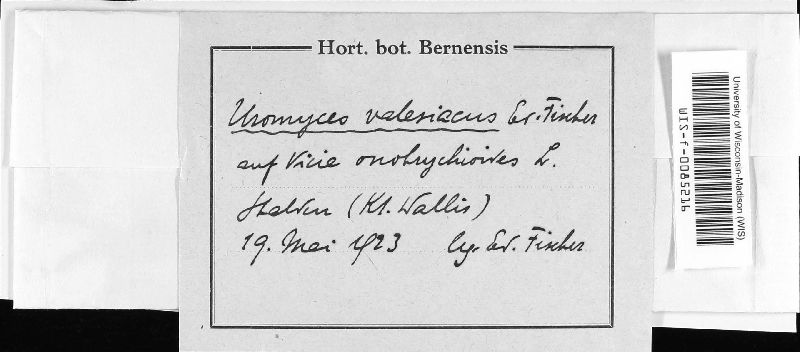 Hort. bot. Bernensis
Uromyces valesiacus Ed. Fischer
auf Vicia onobrychioides L.
Stalden (Kt. Wallis)
19. Mai 1923 leg. Ed. Fischer
University of Wisconsin-Madison (WIS)
WIS-f-0085216